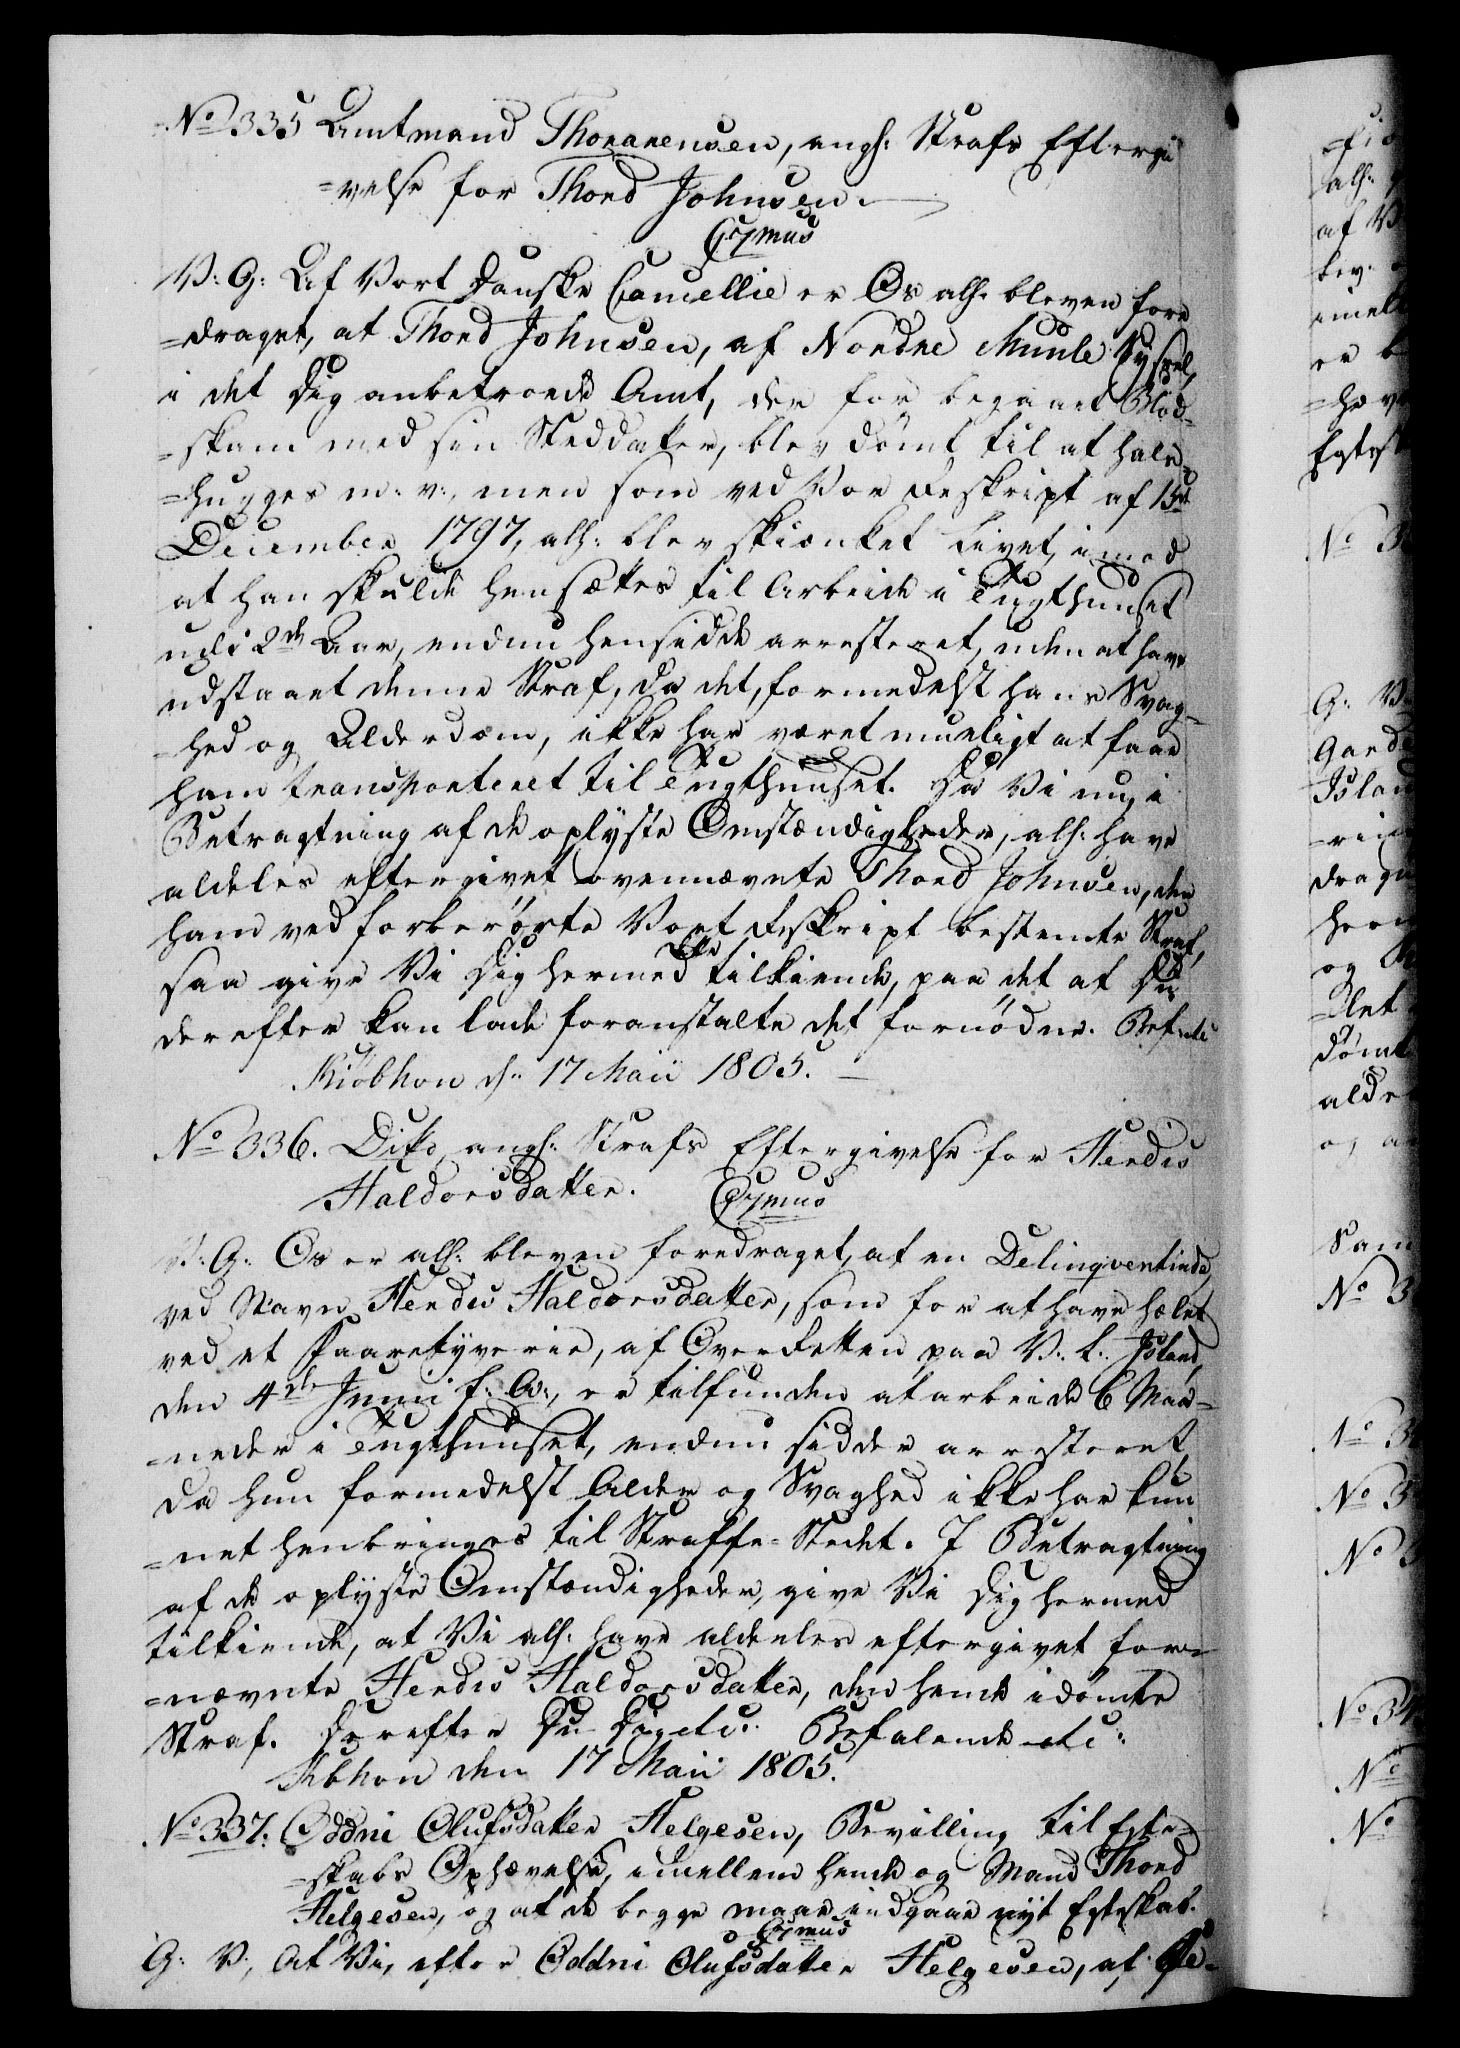 No 335 Amtmand Thorarensen, angl: Strafs Eftergi
=velse for Thord Johnsen.
C7mus
V: G: Af Vort Danske Cancellie er Os allr. bleven fore
=draget, at Thord Johnsen, af Nordre Muule Syssel,
i det Dig anbetroede Amt, der for begaaet Blod-
=skam med sin Steddatter, blev dömt til at hals-
=hugges m: v:, men som ved Vor Reskript af 15de
December 1797, allr: blev skiænket Livet, imod
at han skulde hensættes til Arbeide i Tugthuuset
udi 2de Aar, endnu hensidde arresteret, uden at have
udstaaet denne Straf, da det, formedelst hans Svag-
=hed og Alderdom, ikke har været mueligt at faae
ham transporteret til Tugthuuset. Da Vi nu, i
Betragtning af de oplyste Omstændigheder, allr: have
aldeles eftergivet ovennævnte Thord Johnsen, den
ham ved forberörte Vort Reskript bestemte Straf,
saa give Vi Dig hermed tilkiende, paa det at Du
derefter kan lade foranstalte det fornödne. Befal:
Kiöbhvn d: 17 Maii 1805.
No 336. Dito, angl: Strafs Eftergivelse for Herdis
Haldorsdatter. C7mus
V: G: Os er allr: bleven foredraget, at en Delinqventinde,
ved Navn Herdis Haldorsdatter, som for at have hælet
ved et Faaretyverie, af OverRetten paa V: L: Island,
den 4de Junii f: A:, er tilfunden at arbeide 6 Maa-
=neder i Tugthuuset, endnu sidder arresteret
da hun formedelst Alder og Svaghed ikke har kun
=net henbringes til Straffe-Stedet. I Betragtning
af de oplyste Omstændigheder, give Vi Dig hermed
tilkiende, at Vi allr: have aldeles eftergivet for-
=nævnte Herdis Haldorsdatter, den hende idömte
Straf. Derefter Du Dig etc: Befalende etc:
Kbhvn den 17 Maii 1805.
No 337: Oddni Olufsdatter Helgesen, Bevilling til Egte-
=skabs Ophævelse, imellem hende og Mand Thord
Helgesen, og at de begge maae indgaae nyt Egteskab.
C7mus
G: V:, At Vi, efter Oddni Olufsdatter Helgesen, af